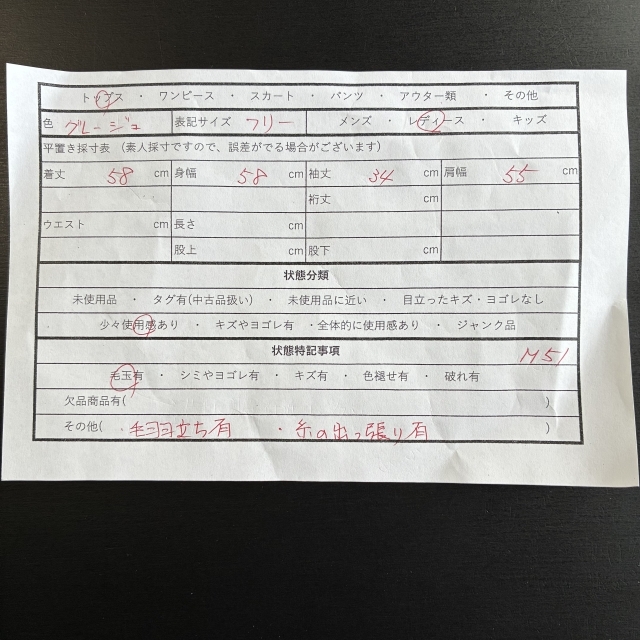 トップス ・ ワンピース ・ スカート ・ パンツ ・ アウター類 ・ その他
色 グレージュ 表記サイズ フリー メンズ ・ レディース ・ キッズ
平置き採寸表 (素人採寸ですので、誤差がでる場合がございます)
着丈 58 cm 身幅 58 cm 袖丈 34 cm 肩幅 55 cm
裄丈 cm
ウエスト cm 長さ cm
股上 cm 股下 cm
状態分類
未使用品 ・ タグ有(中古品扱い) ・ 未使用品に近い ・ 目立ったキズ・ヨゴレなし
少々使用感あり ・ キズやヨゴレ有 ・全体的に使用感あり ・ ジャンク品
状態特記事項 M51
毛玉有 ・ シミやヨゴレ有 ・ キズ有 ・ 色褪せ有 ・ 破れ有
欠品商品有( )
その他( ・毛羽立ち有 ・糸の出っ張り有 )